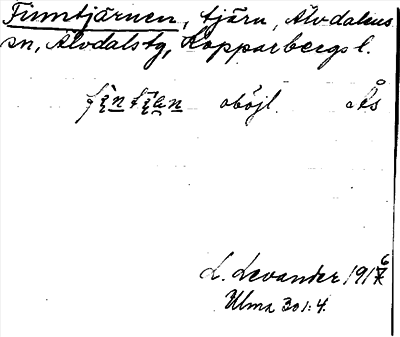 Finntjärnen, tjärn, Älvdalens
sn, Älvdalstg, Kopparbergs l.
oböjl. Ås
L. Levander 1916
Ulma 301:4.